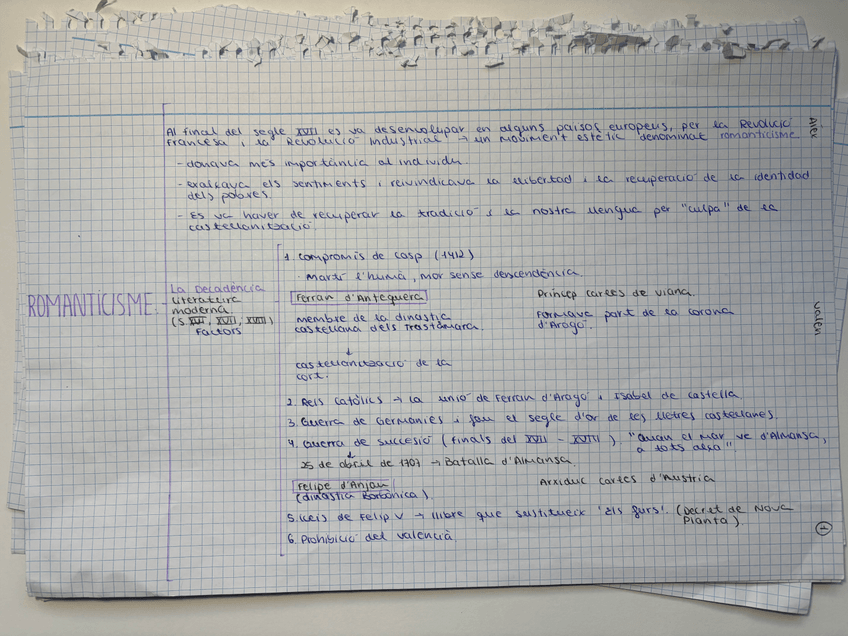 Al final del segle XVII es va desenvolupar en alguns països europeus, per la Revolució
Francesa i la Revolució Industrial → un moviment estètic denominat romanticisme
- donava més importància al individu.
- exaltava els sentiments i reivindicava la llibertat i la recuperació de la identitat
dels pobles.
- Es va haver de recuperar la tradició i la nostra llengua per "culpa" de la
castellanització.
ROMANTICISME:
La Decadència
Literatura
moderna
(S. XVI, XVII, XVIII)
Factors
1. Compromís de Casp (1412)
· Martí l'humà, mor sense descendència.
Ferran d'Antequera
Príncep Carles de Viana.
membre de la dinastia
castellana dels Trastàmara.
Formava part de la corona
d'Aragó.
↓
castellanització de la
cort.
2. Reis Catòlics → la unió de Ferran d'Aragó i Isabel de Castella.
3. Guerra de Germanies i fou el segle d'or de les lletres castellanes.
4. Guerra de Succesió (finals del XVII - XVIII). "Quan el mar ve d'Almansa,
a tots alxa"
↓
25 de abril de 1707 → Batalla d'Almansa.
Felipe d'Anjou
(dinastia Borbònica).
Arxiduc Carles d'Austria
5. Lleis de Felip V → llibre que sustitueix 'Els furs'. (Decret de Nova
Planta).
6. Prohibició del valencià
Alex
Valen
1